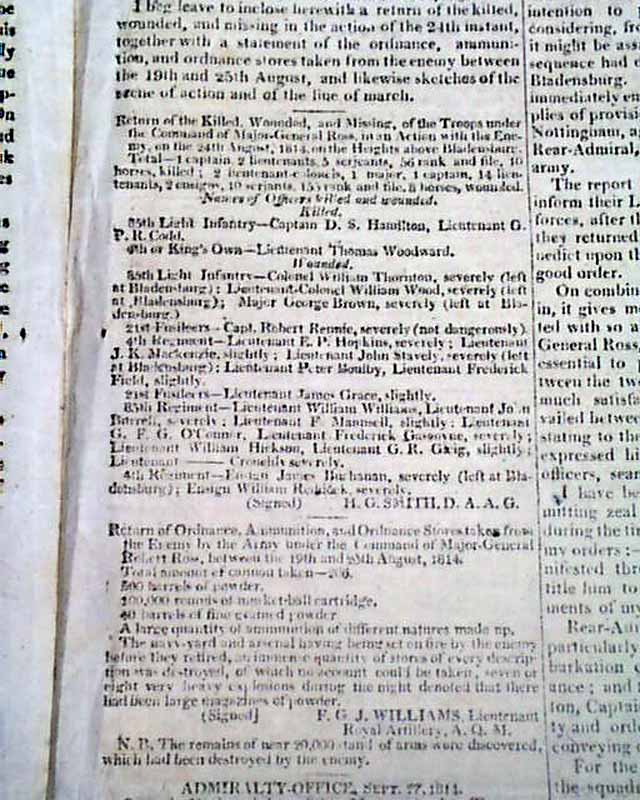 I beg leave to inclose herewith a return of the killed,
wounded, and missing in the action of the 24th instant,
together with a statement of the ordnance, ammuni-
tion, and ordnance stores taken from the enemy between
the 19th and 25th August, and likewise sketches of the
scene of action and of the line of march.
Return of the Killed, Wounded, and Missing, of the Troops under
the Command of Major-General Ross, in an Action with the Ene-
my, on the 24th August, 1814, on the Heights above Bladensburg.
Total—1 captain, 2 lieutenants, 5 serjeants, 56 rank and file, 10
horses, killed; 2 lieutenant-colonels, 1 major, 1 captain, 14 lieu-
tenants, 2 ensigns, 10 serjants, rank and file, 8 horses, wounded.
Names of Officers killed and wounded.
Killed.
85th Light Infantry—Captain D. S. Hamilton, Lieutenant G.
P. R. Codd.
4th or King's Own—Lieutenant Thomas Woodward.
Wounded.
85th Light Infantry—Colonel William Thornton, severely (left
at Bladensburg); Lieutenant-Colonel William Wood, severely (left
at Bladensburg); Major George Brown, severely (left at Bla-
densburg.)
21st Fusileers—Capt. Robert Rennie, severely (not dangerously).
4th Regiment—Lieutenant E. P. Hopkins, severely; Lieutenant
J. K. Mackenzie, slightly; Lieutenant John Stavely, severely (left
at Bladensburg); Lieutenant Peter Boulby, Lieutenant Frederick
Field, slightly.
21st Fusileers—Lieutenant James Grace, slightly.
85th Regiment—Lieutenant William Williams, Lieutenant John
Burrell, severely; Lieutenant F. Maunsell, slightly; Lieutenant
G. F. G. O'Connor, Lieutenant Frederick Gascoyne, severely;
Lieutenant William Hickson, Lieutenant G. R. Gleig, slightly;
Lieutenant —— Crouchly severely.
4th Regiment—Ensign James Buchanan, severely (left at Bla-
densburg); Ensign William Reddock, severely.
(Signed) H. G. SMITH, D. A. A. G.
Return of Ordnance, Ammunition, and Ordnance Stores taken from
the Enemy by the Army under the Command of Major-General
Robert Ross, between the 19th and 25th August, 1814.
Total amount of cannon taken—206.
500 barrels of powder.
100,000 rounds of musket-ball cartridge.
40 barrels of fine grained powder.
A large quantity of ammunition of different natures made up.
The navy-yard and arsenal having being set on fire by the enemy
before they retired, an immense quantity of stores of every descrip-
tion was destroyed, of which no account could be taken, seven or
eight very heavy explosions during the night denoted that there
had been large magazines of powder.
(Signed) F. G. J. WILLIAMS, Lieutenant
Royal Artillery, A. Q. M.
N. B. The remains of near 20,000 stand of arms were discovered,
which had been destroyed by the enemy.
ADMIRALTY-OFFICE, SEPT. 27, 1814.
intention to
considering,
it might be
sequence had
Bladensburg.
immediately
plies of
Nottingham,
Rear-Admiral,
army.
The report
inform their
forces, after
they returned
upon the
good order.
On
in, it gives
ted with so
General Ross,
essential to
tween the
much
vailed between
stating to the
expressed his
officers,
I have
mitting zeal
during the
my orders:
title him to
ments of my
particularly
barkation
ance; and
ton,
ty and
conveying
For the
the